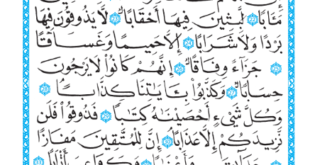 مَـَٔابًا ۝ لَّٰبِثِينَ فِيهَآ أَحْقَابًا ۝ لَّا يَذُوقُونَ فِيهَا
بَرْدًا وَلَا شَرَابًا ۝ إِلَّا حَمِيمًا وَغَسَّاقًا
۝ جَزَآءً وِفَاقًا ۝ إِنَّهُمْ كَانُوا۟ لَا يَرْجُونَ
حِسَابًا ۝ وَكَذَّبُوا۟ بِـَٔايَٰتِنَا كِذَّابًا
۝ وَكُلَّ شَىْءٍ أَحْصَيْنَٰهُ كِتَٰبًا ۝ فَذُوقُوا۟ فَلَن
نَّزِيدَكُمْ إِلَّا عَذَابًا ۝ إِنَّ لِلْمُتَّقِينَ مَفَازًا